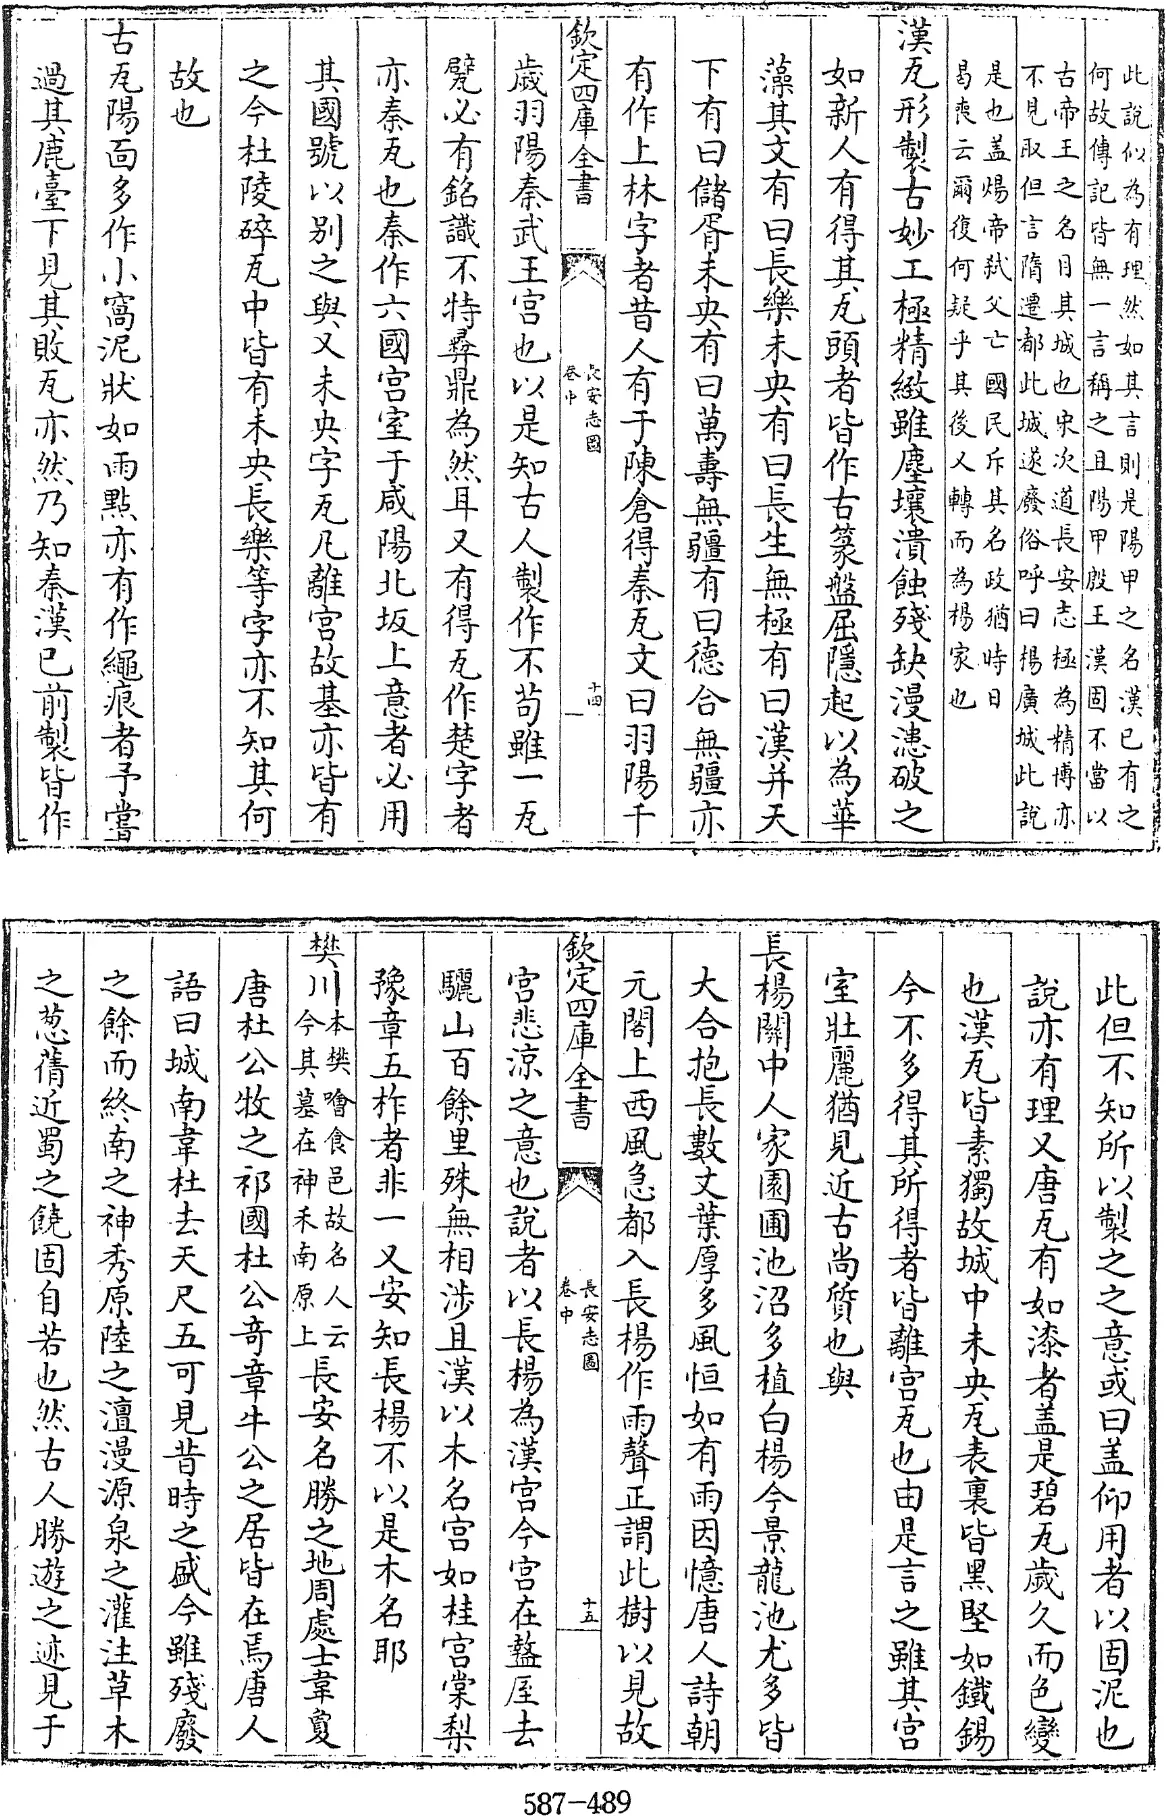 此說似為有理然如其言則是陽甲之名漢已有之
何故傳記皆無一言稱之且陽甲殷王漢固不當以
古帝王之名目其城也宋次道長安志極為精博亦
不見取但言隋遷都此城遂廢俗呼曰楊廣城此說
是也盖煬帝弑父亡國民斥其名政猶時日
曷喪云爾復何疑乎其後又轉而為楊家也
漢瓦形製古妙工極精緻雖塵壤漬蝕殘缺漫漶破之
如新人有得其瓦頭者皆作古篆盤屈隱起以為華
藻其文有曰長樂未央有曰長生無極有曰漢并天
下有曰儲胥未央有曰萬壽無疆有曰德合無疆亦
有作上林字者昔人有于陳倉得秦瓦文曰羽陽千
欽定四庫全書
長安志圖
卷中
十四
歲羽陽秦武王宮也以是知古人製作不茍雖一瓦
甓必有銘識不特彝鼎為然耳又有得瓦作楚字者
亦秦瓦也秦作六國宮室于咸陽北坂上意者必用
其國號以别之與又未央字瓦凡離宮故基亦皆有
之今杜陵碎瓦中皆有未央長樂等字亦不知其何
故也
古瓦陽面多作小窩泥狀如雨點亦有作繩痕者予嘗
過其鹿臺下見其敗瓦亦然乃知秦漢已前製皆作
此但不知所以製之之意或曰盖仰用者以固泥也
說亦有理又唐瓦有如漆者盖是碧瓦歲久而色變
也漢瓦皆素獨故城中未央瓦表裏皆黑堅如鐵錫
今不多得其所得者皆離宮瓦也由是言之雖其宮
室壯麗猶見近古尚質也與
長楊關中人家園圃池沼多植白楊今景龍池尤多皆
大合抱長數丈葉厚多風恒如有雨因憶唐人詩朝
元閣上西風急都入長楊作雨聲正謂此樹以見故
欽定四庫全書
長安志圖
卷中
十五
宮悲凉之意也說者以長楊為漢宮今宮在盩厔去
驪山百餘里殊無相涉且漢以木名宮如桂宮棠梨
豫章五柞者非一又安知長楊不以是木名耶
樊川本樊噲食邑故名人云今其墓在神禾南原上長安名勝之地周處士韋敻
唐杜公牧之祁國杜公竒章牛公之居皆在焉唐人
語曰城南韋杜去天尺五可見昔時之盛今雖殘廢
之餘而終南之神秀原陸之澶漫源泉之灌注草木
之葱蒨近蜀之饒固自若也然古人勝遊之迹見于
587-489